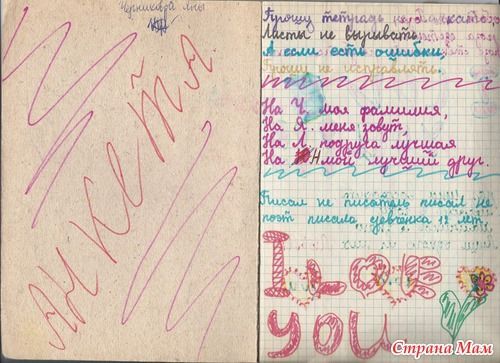 Анкета.
Прошу тетрадь не
Листы не вырывать
А если есть ошибки,
Прошу не исправлять.
На Ч. моя фамилия,
На Я. меня зовут,
На Л. подруга лучшая
На Н мой лучший друг.
Писал не писатель писал не
поэт писала девчёнка 12 лет.
I LOVE
YOU
Страна Мам